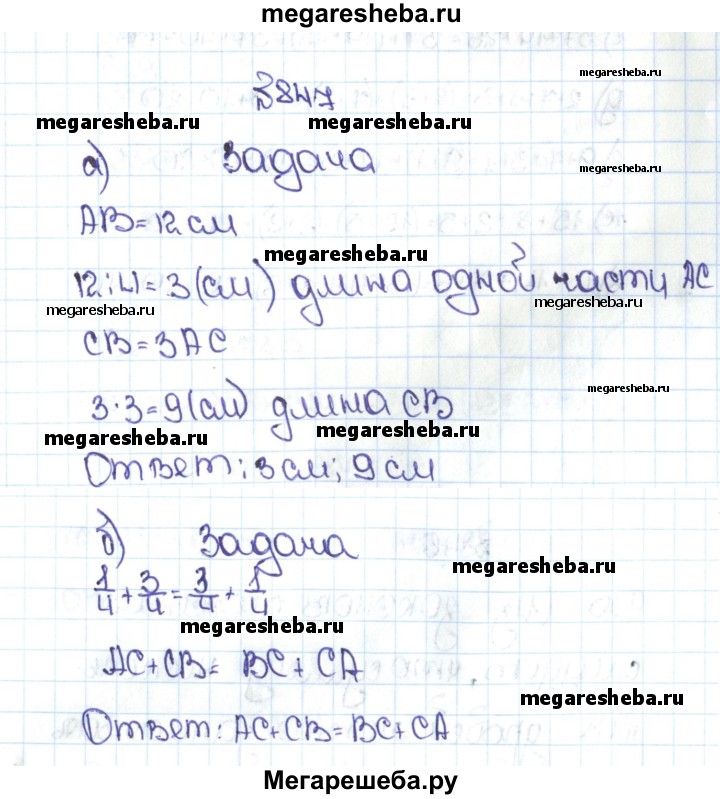 megaresheba.ru
№847
megaresheba.ru
megaresheba.ru megaresheba.ru
а) Задача
АВ=12 см
megaresheba.ru
12:4=3(см) длина одной части АС
megaresheba.ru megaresheba.ru
СВ=3АС
megaresheba.ru
3·3=9(см) длина СВ
megaresheba.ru megaresheba.ru
Ответ: 3 см; 9 см
б) Задача
1/4+3/4=3/4+1/4
megaresheba.ru
megaresheba.ru
АС+СВ= ВС+СА
megaresheba.ru
Ответ: АС+СВ=ВС+СА
Мегарешеба.ру